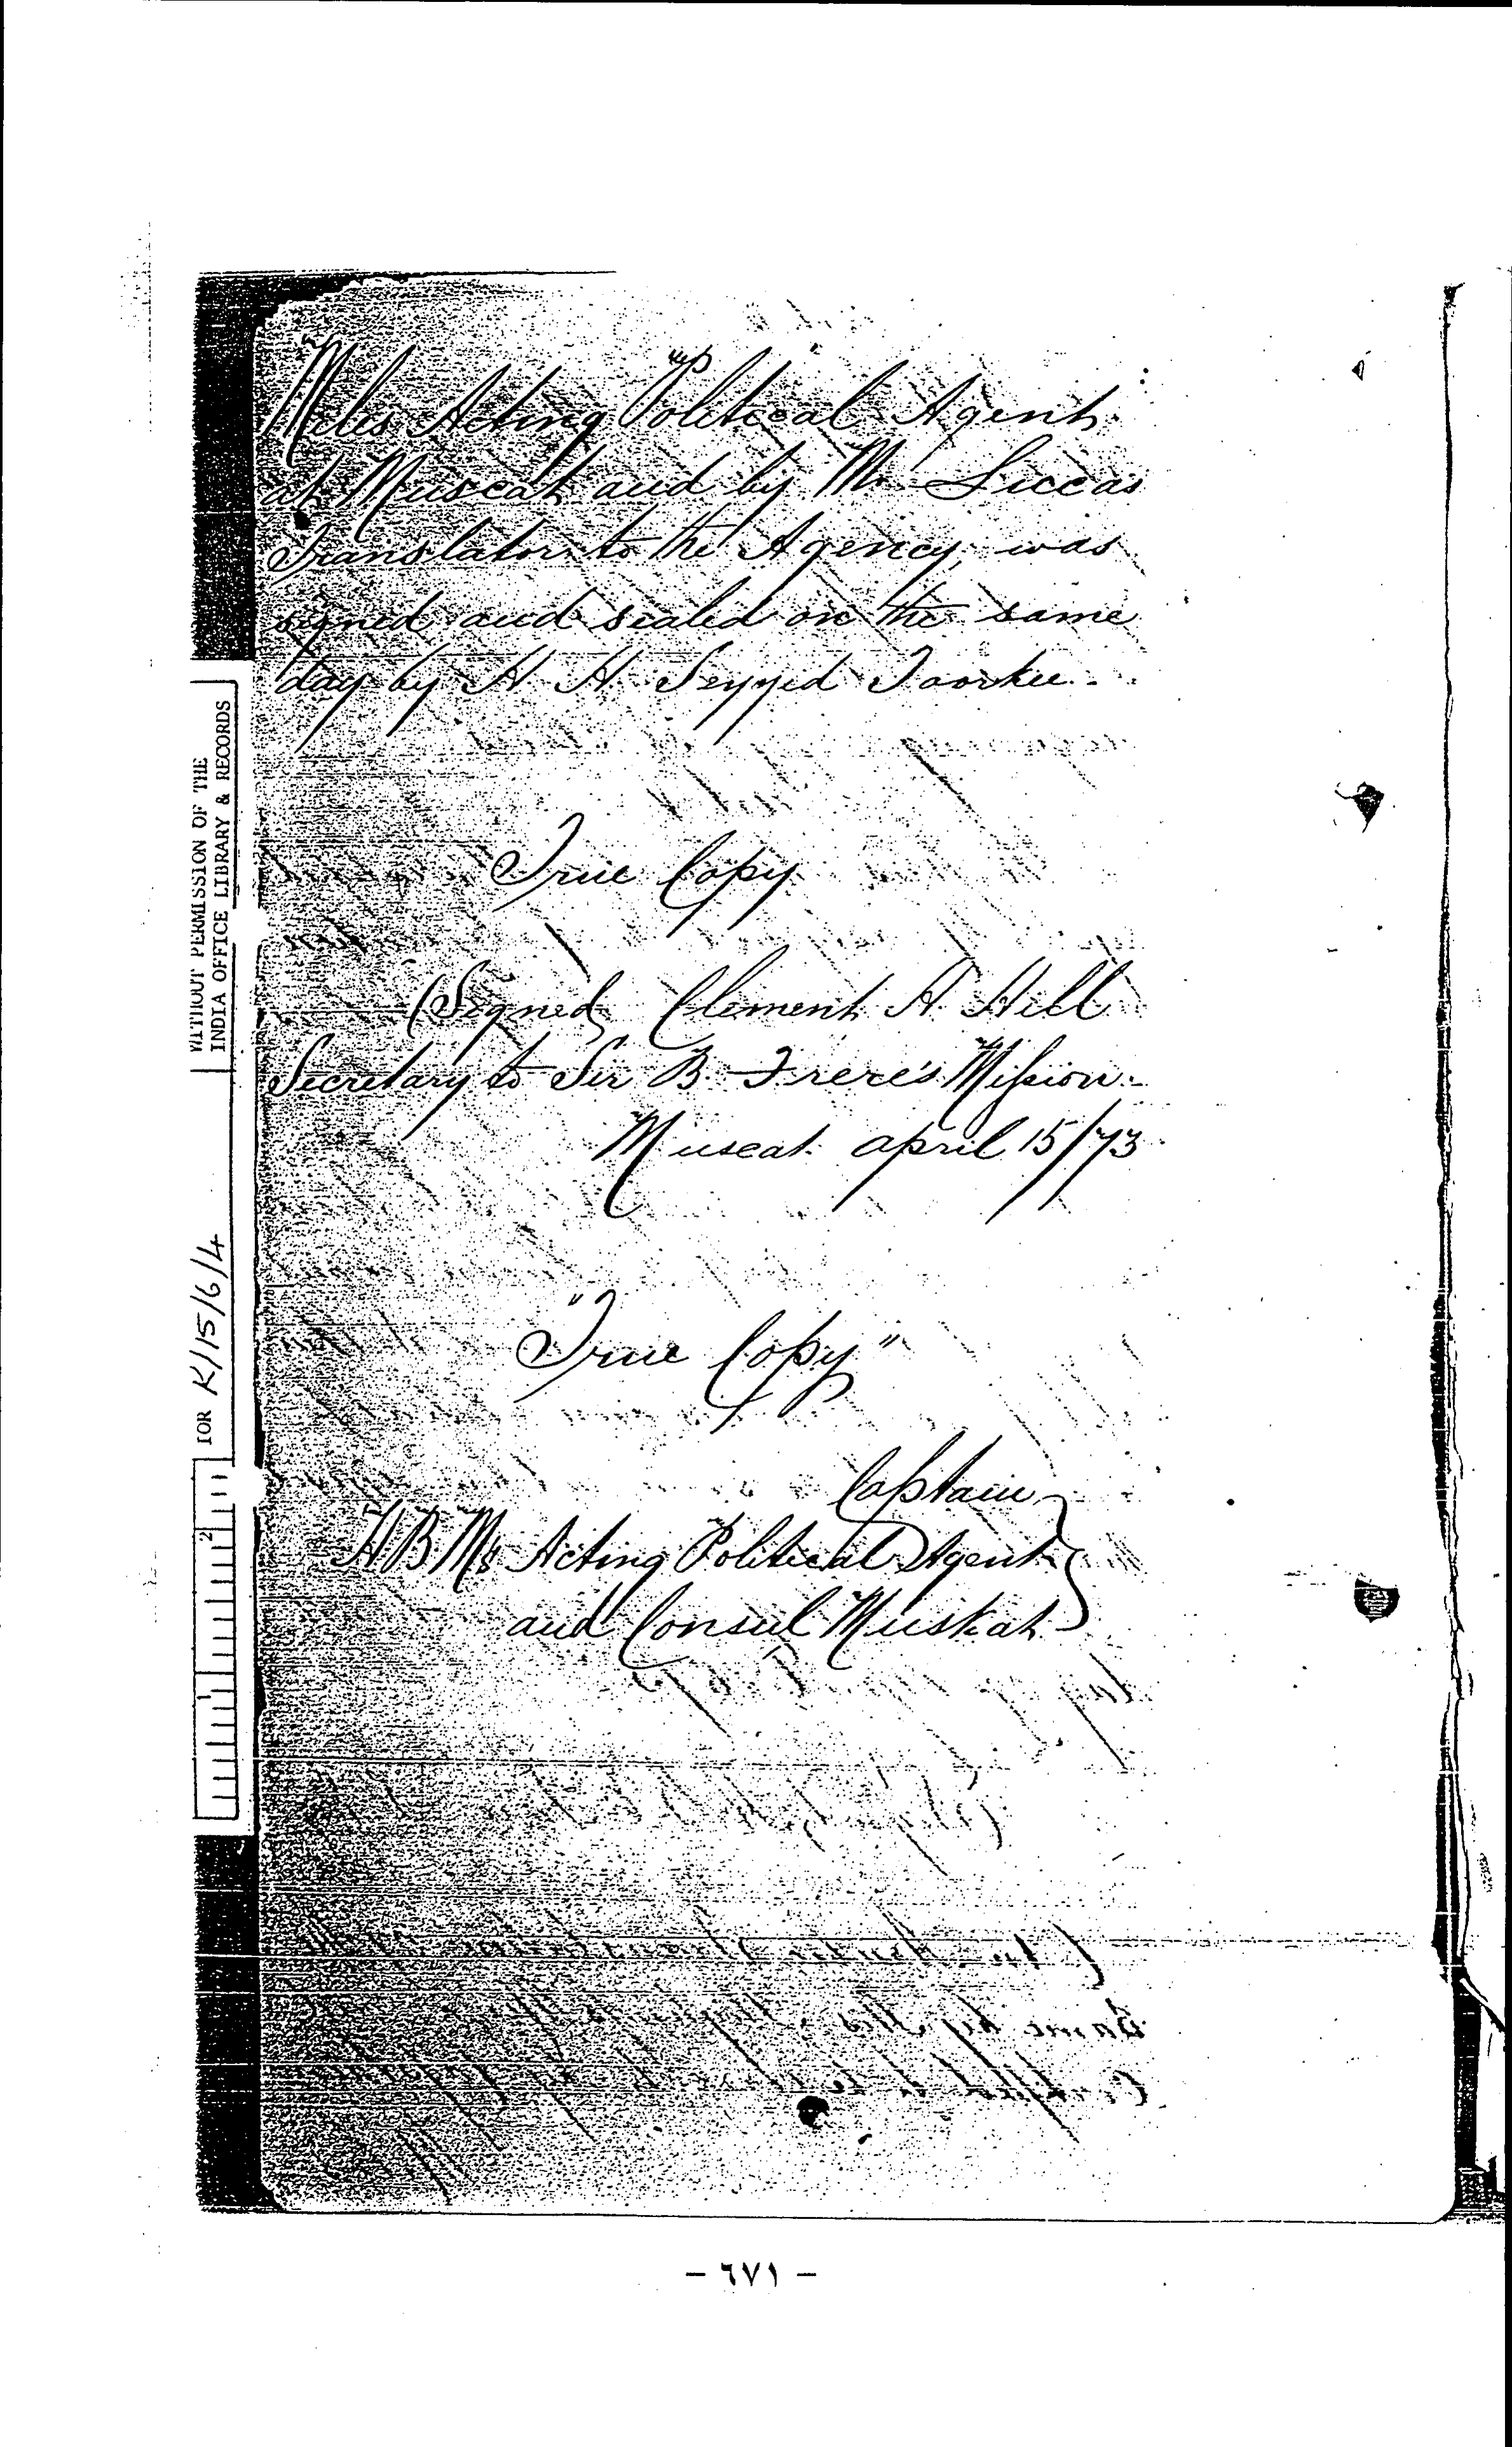 Miles Acting Political Agent
at Muscat and by Mr. Luccas
Translator to the Agency, was
signed and sealed on the same
day by H. H. Seyyid Toorkee.
True Copy
(Signed) Clement H. Hill
Secretary to Sir B. Frere's Mission.
Muscat. april 15/73
"True Copy"
Captain
H B M's Acting Political Agent
and Consul Muskat
WITHOUT PERMISSION OF THE
INDIA OFFICE LIBRARY & RECORDS
IOR R/15/6/4
2
- ٦٧١ -